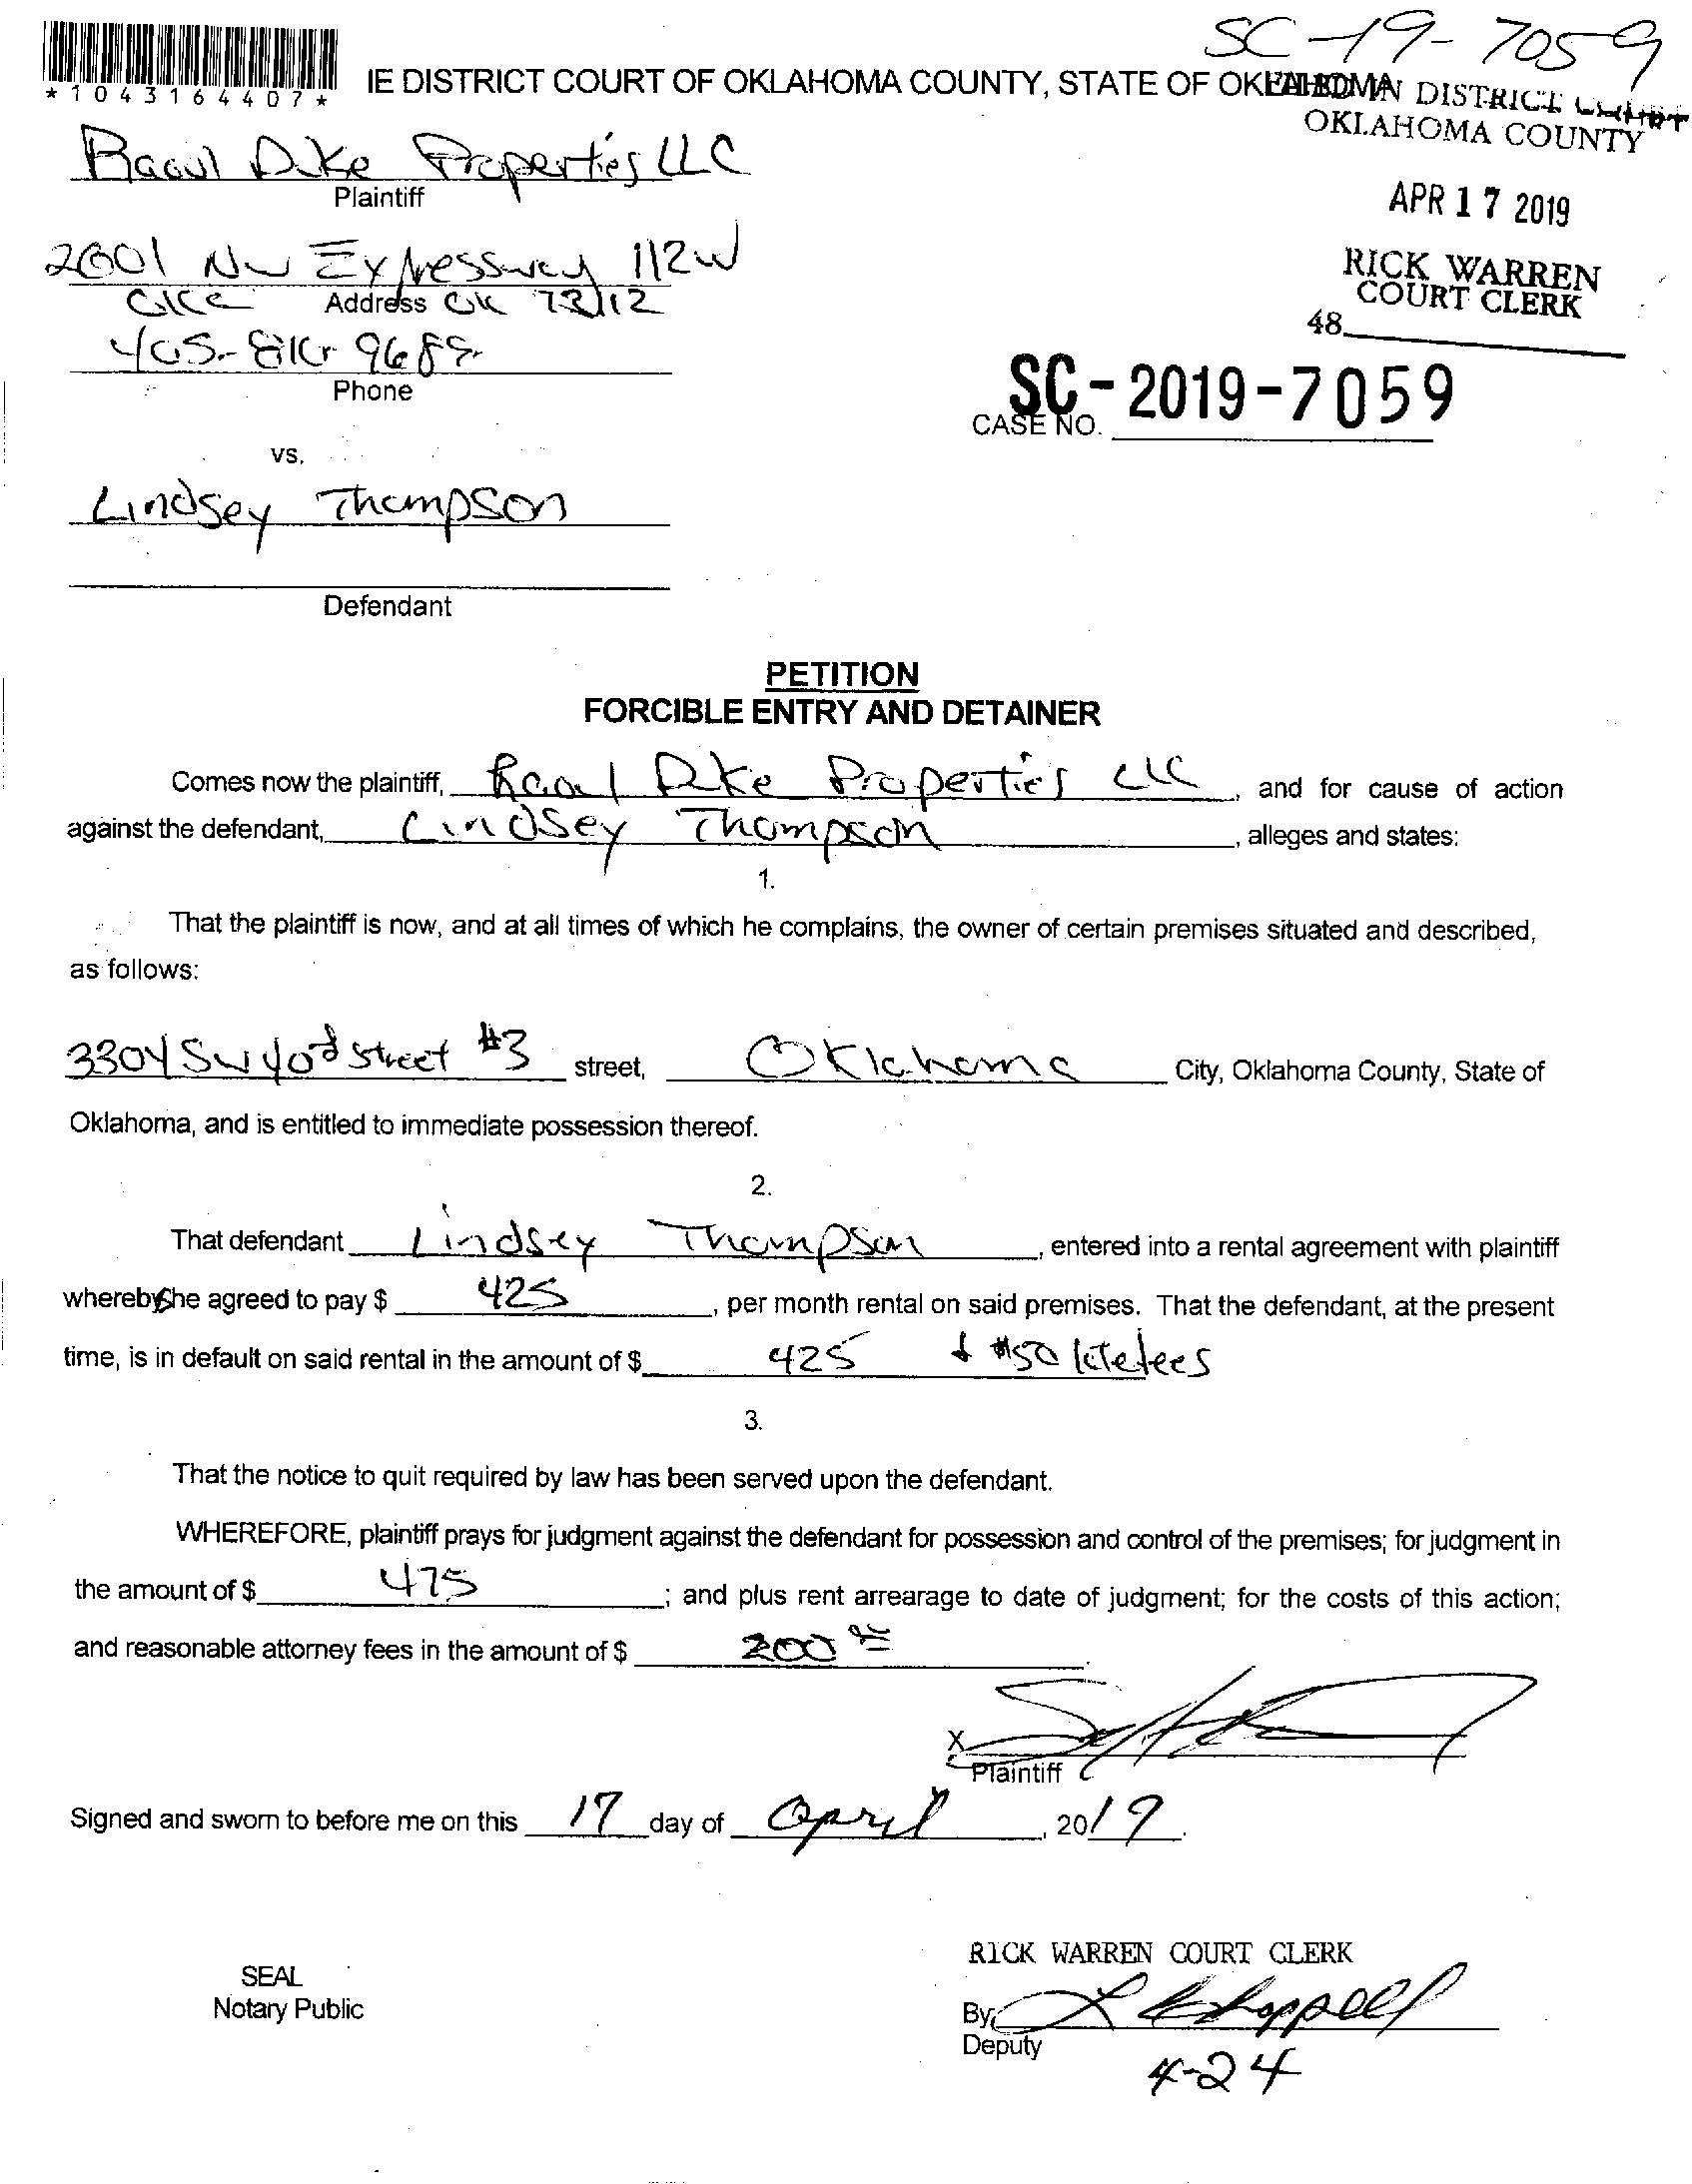 SC-19-7059
*1043164407*
IE DISTRICT COURT OF OKLAHOMA COUNTY, STATE OF OKLAHOMA
FILED IN DISTRICT COURT
OKLAHOMA COUNTY
Raoul Duke Properties LLC
Plaintiff
APR 17 2019
RICK WARREN
COURT CLERK
48
2601 NW Expressway 112W
OKC Address OK 73112
Phone
SC-2019-7059
CASE NO.
vs.
Lindsey Thompson
Defendant
PETITION
FORCIBLE ENTRY AND DETAINER
Comes now the plaintiff, Raoul Duke Properties LLC, and for cause of action
against the defendant, Lindsey Thompson, alleges and states:
1.
That the plaintiff is now, and at all times of which he complains, the owner of certain premises situated and described,
as follows:
3304 SW 40 Street #3 street, Oklahoma City, Oklahoma County, State of
Oklahoma, and is entitled to immediate possession thereof.
2.
That defendant Lindsey Thompson, entered into a rental agreement with plaintiff
whereby she agreed to pay $ 425, per month rental on said premises. That the defendant, at the present
time, is in default on said rental in the amount of $ 425 + $50 late fees
3.
That the notice to quit required by law has been served upon the defendant.
WHEREFORE, plaintiff prays for judgment against the defendant for possession and control of the premises; for judgment in
the amount of $ 475; and plus rent arrearage to date of judgment; for the costs of this action;
and reasonable attorney fees in the amount of $ 200.
X
Plaintiff
Signed and sworn to before me on this 17 day of April, 2019.
RICK WARREN COURT CLERK
SEAL
Notary Public
By L Chappell
Deputy
4-24